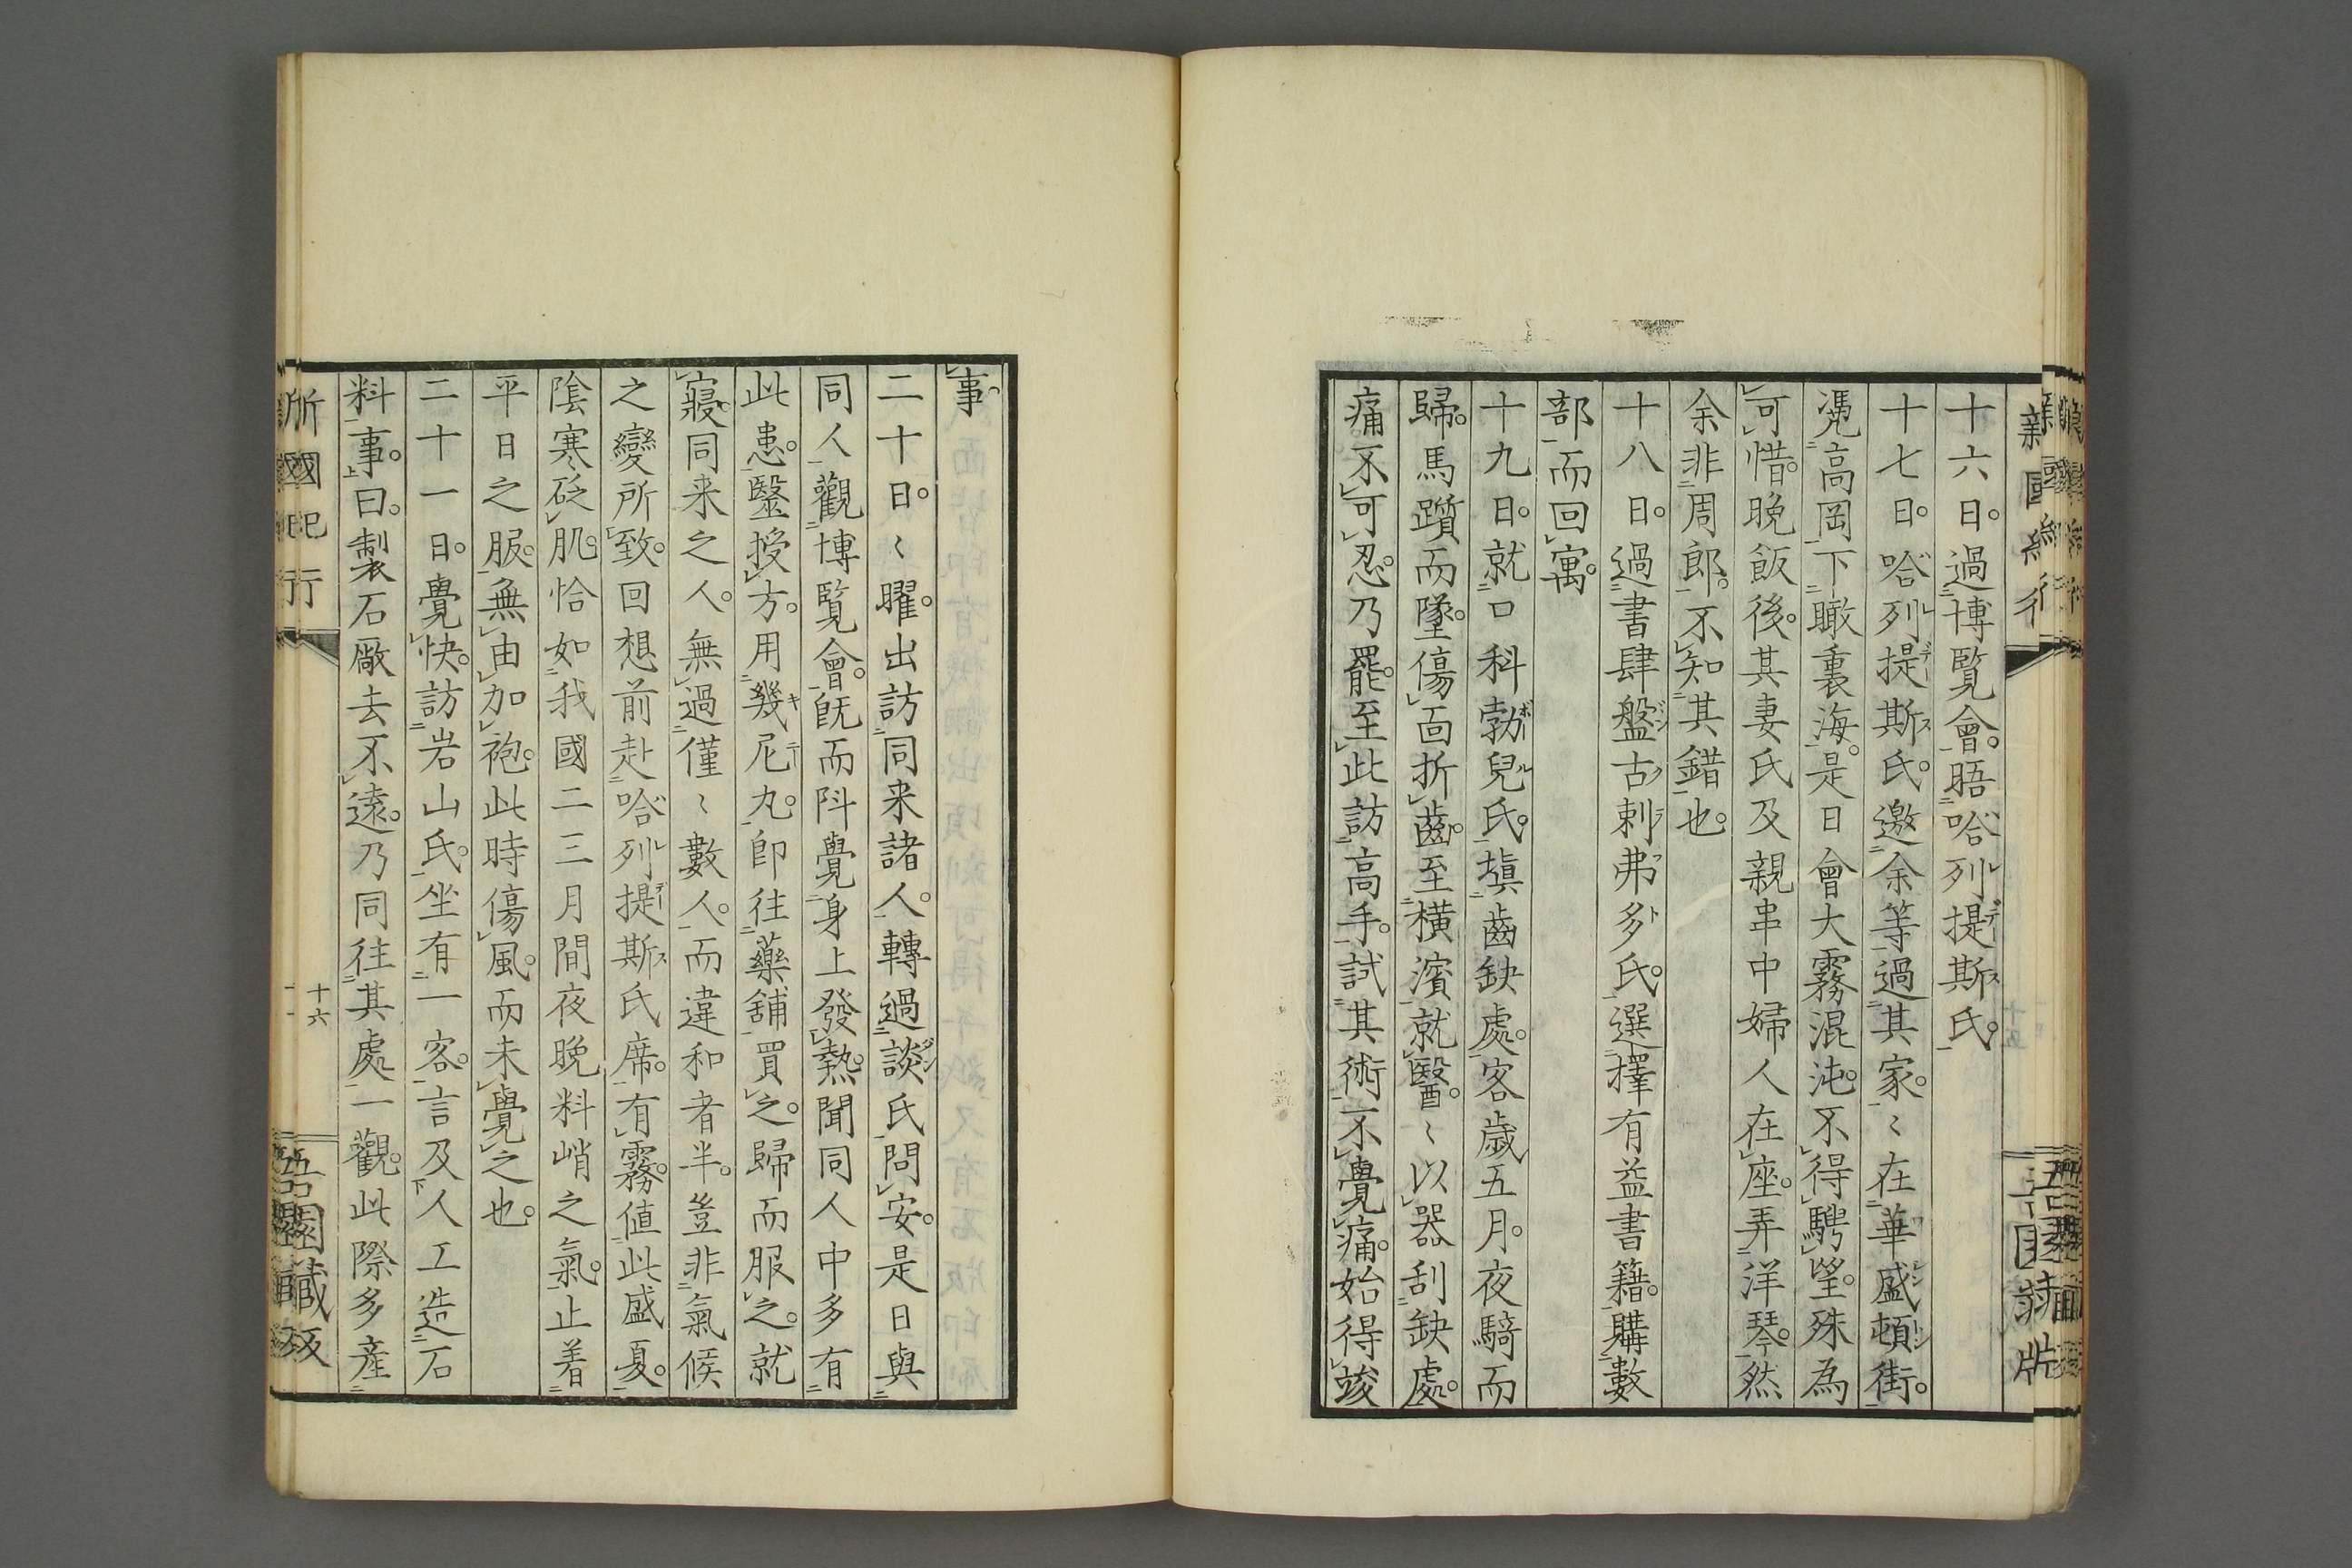 十六日。過博覧會。晤哈列提斯氏。
十七日。哈列提斯氏。邀余等過其家。〻在華盛頓街。
凴高岡下瞰裏海。是日會大霧混沌。不得騁望。殊為
可惜。晩飯後。其妻氏及親串中婦人在座。弄洋琴。然
余非周郎。不知其錯也。
十八日。過書肆盤古剌弗多氏。選擇有益書籍。購數
部而回寓。
十九日。就口科勃兒氏。塡齒缺處。客歳五月。夜騎而
歸。馬躓而墜。傷面折齒。至橫濱就醫。〻以器刮缺處。
痛不可忍。乃罷。至此訪高手。試其術。不覺痛。始得竣
事
二十日。〻曜。出訪同来諸人。轉過談氏問安。是日與
同人觀博覧會。旣而斗覺身上發熱。聞同人中多有
此患。毉授方。用幾尼丸。卽往藥舗買之。歸而服之。就
寢。同来之人。無過僅〻數人。而違和者半。豈非氣候
之變所致。回想前赴哈列提斯氏席。有霧。値此盛夏。
陰寒砭肌。恰如我國二三月間夜晩料峭之氣。止着
平日之服。無由加袍。此時傷風。而未覺之也。
二十一日。覺快。訪岩山氏。坐有一客。言及人工造石
料事。曰。製石廠去不遠。乃同往其處一觀。此際多産
十六